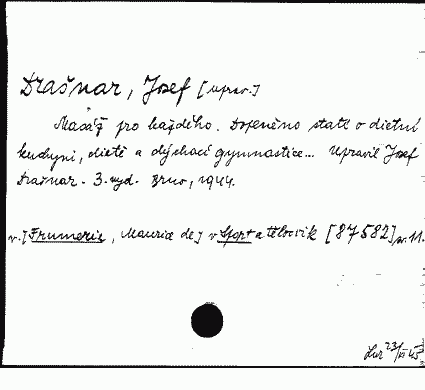 Drašnar, Josef [uprav.]
Masáž pro každého. Doplněno statí o dietní
kuchyni, dietě a dýchací gymnastice... Upravil Josef
Drašnar. 3. vyd. Brno, 1944.
v. [Frumerie, Maurice de] v Sport a tělocvik [87582] sv. 11.